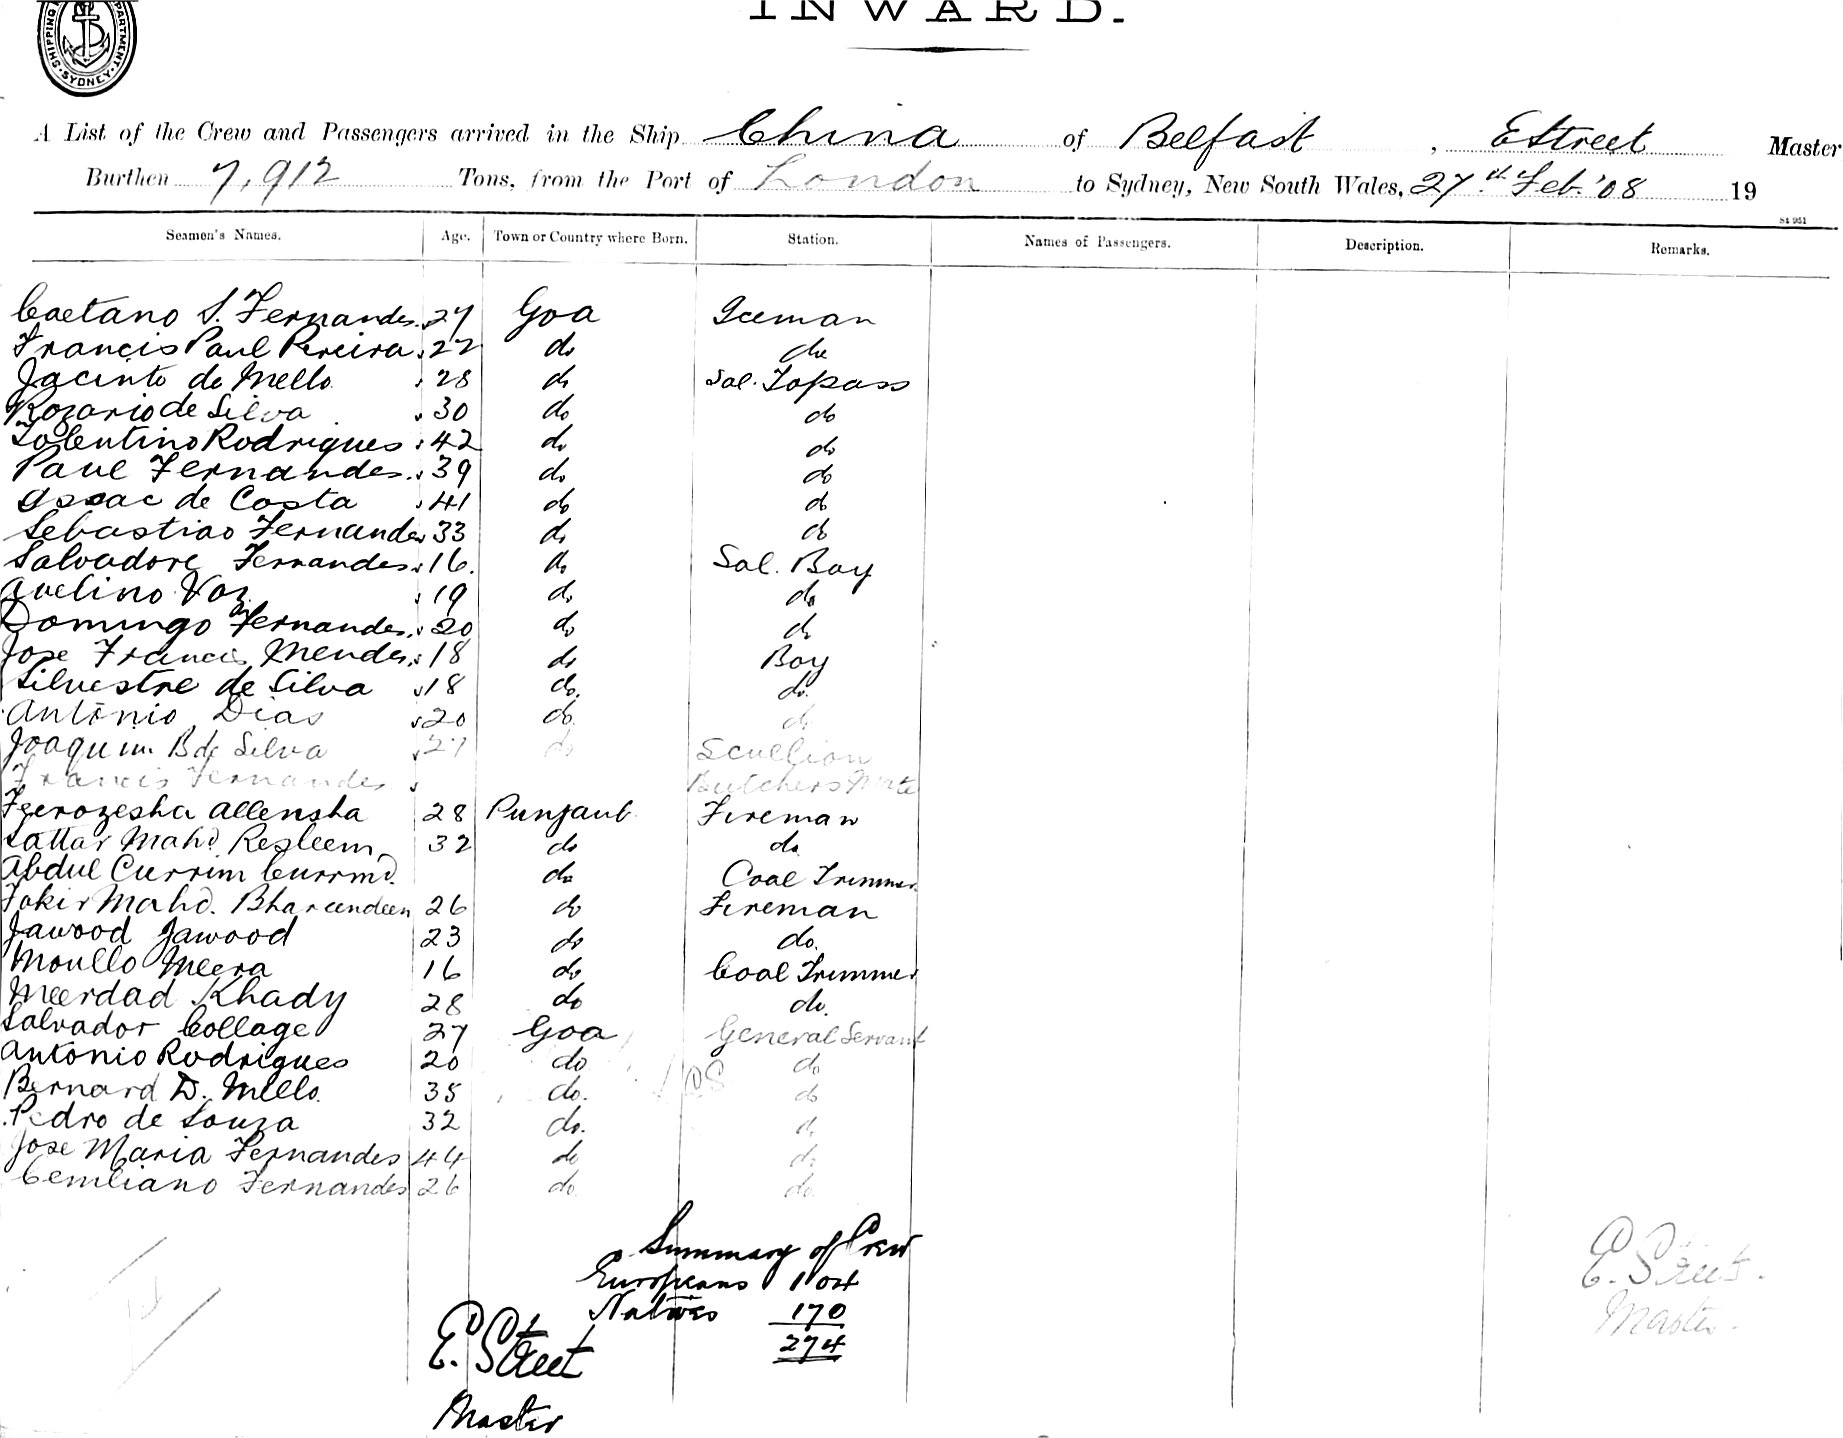 SHIPPING DEPARTMENT SYDNEY
INWARD.
A List of the Crew and Passengers arrived in the Ship China of Belfast, E Street Master
Burthen 7,912 Tons, from the Port of London to Sydney, New South Wales, 27th Feb. '08 19
Seamen's Names. Age. Town or Country where Born. Station. Names of Passengers. Description. Remarks.
Caetano S. Fernandes 27 Goa Iceman
Francis Paul Pereira 22 do do
Jacinto de Mello 28 do Sal. Topass
Rozario de Silva 30 do do
Tolentino Rodrigues 42 do do
Paul Fernandes 39 do do
Assac de Costa 41 do do
Sebastiao Fernandes 33 do do
Salvadore Fernandes 16. do Sal. Boy
Avelino Vaz 19 do do
Domingo Fernandes 20 do do
Jose Francis Mendes 18 do Boy
Silvestre de Silva 18 do. do.
Antonio Dias 20 do. do
Joaquim B de Silva 27 do Scullion
Francis Fernandes Butchers Mate
Feerozesha Allensha 28 Punjaub Fireman
Sattar Mahd. Resleem 32 do do.
Abdul Currim Currmd. do Coal Trimmer
Fakir Mahd. Bhareendeen 26 do Fireman
Jawood Jawood 23 do do.
Moullo Meera 16 do Coal Trimmer
Meerdad Khady 28 do do.
Salvador Collage 27 Goa General Servant
Antonio Rodrigues 20 do do
Bernard D. Mello. 35 do. do
Pedro de Souza 32 do. do
Jose Maria Fernandes 44 do do
Cemiliano Fernandes 26 do. do.
Summary of Crew
Europeans 104
Natives 170
274
E. Street
Master
E. Street.
Master.